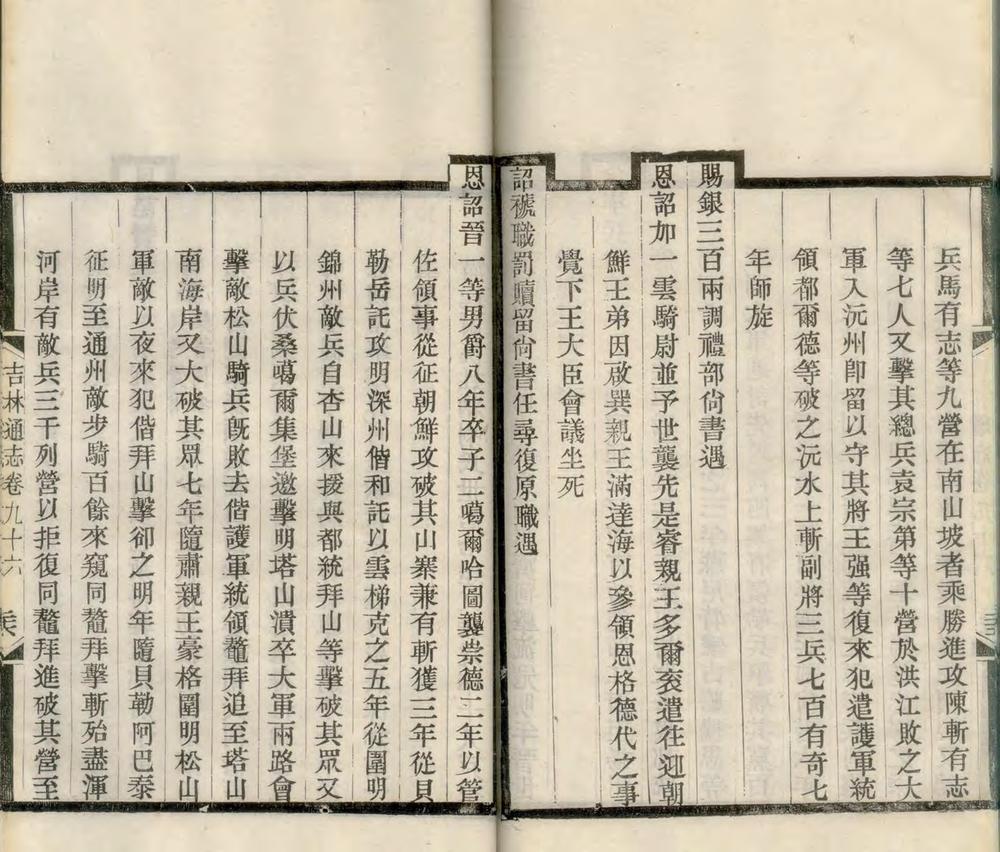 兵馬有志等九營在南山坡者乘勝進攻陳斬有志
等七人又擊其總兵袁宗第等十營於洪江敗之大
軍入沅州卽留以守其將王强等復來犯遣護軍統
領都爾德等破之沅水上斬副將三兵七百有奇七
年師旋
賜銀三百兩調禮部尙書遇
恩詔加一雲騎尉並予世襲先是睿親王多爾袞遣往迎朝
鮮王弟因啟巽親王滿達海以參領恩格德代之事
覺下王大臣會議坐死
詔褫職罰贖留尙書任尋復原職遇
恩詔晉一等男爵八年卒子二噶爾哈圖襲崇德二年以管
佐領事從征朝鮮攻破其山寨兼有斬獲三年從貝
勒岳託攻明深州偕和託以雲梯克之五年從圍明
錦州敵兵自杏山來援與都統拜山等擊破其眾又
以兵伏桑噶爾集堡邀擊明塔山潰卒大軍兩路會
擊敵松山騎兵旣敗去偕護軍統領鼇拜追至塔山
南海岸又大破其眾七年隨肅親王豪格圍明松山
軍敵以夜來犯偕拜山擊卻之明年隨貝勒阿巴泰
征明至通州敵步騎百餘來窺同鼇拜擊斬殆盡渾
河岸有敵兵三千列營以拒復同鼇拜進破其營至
吉林通志卷九十六